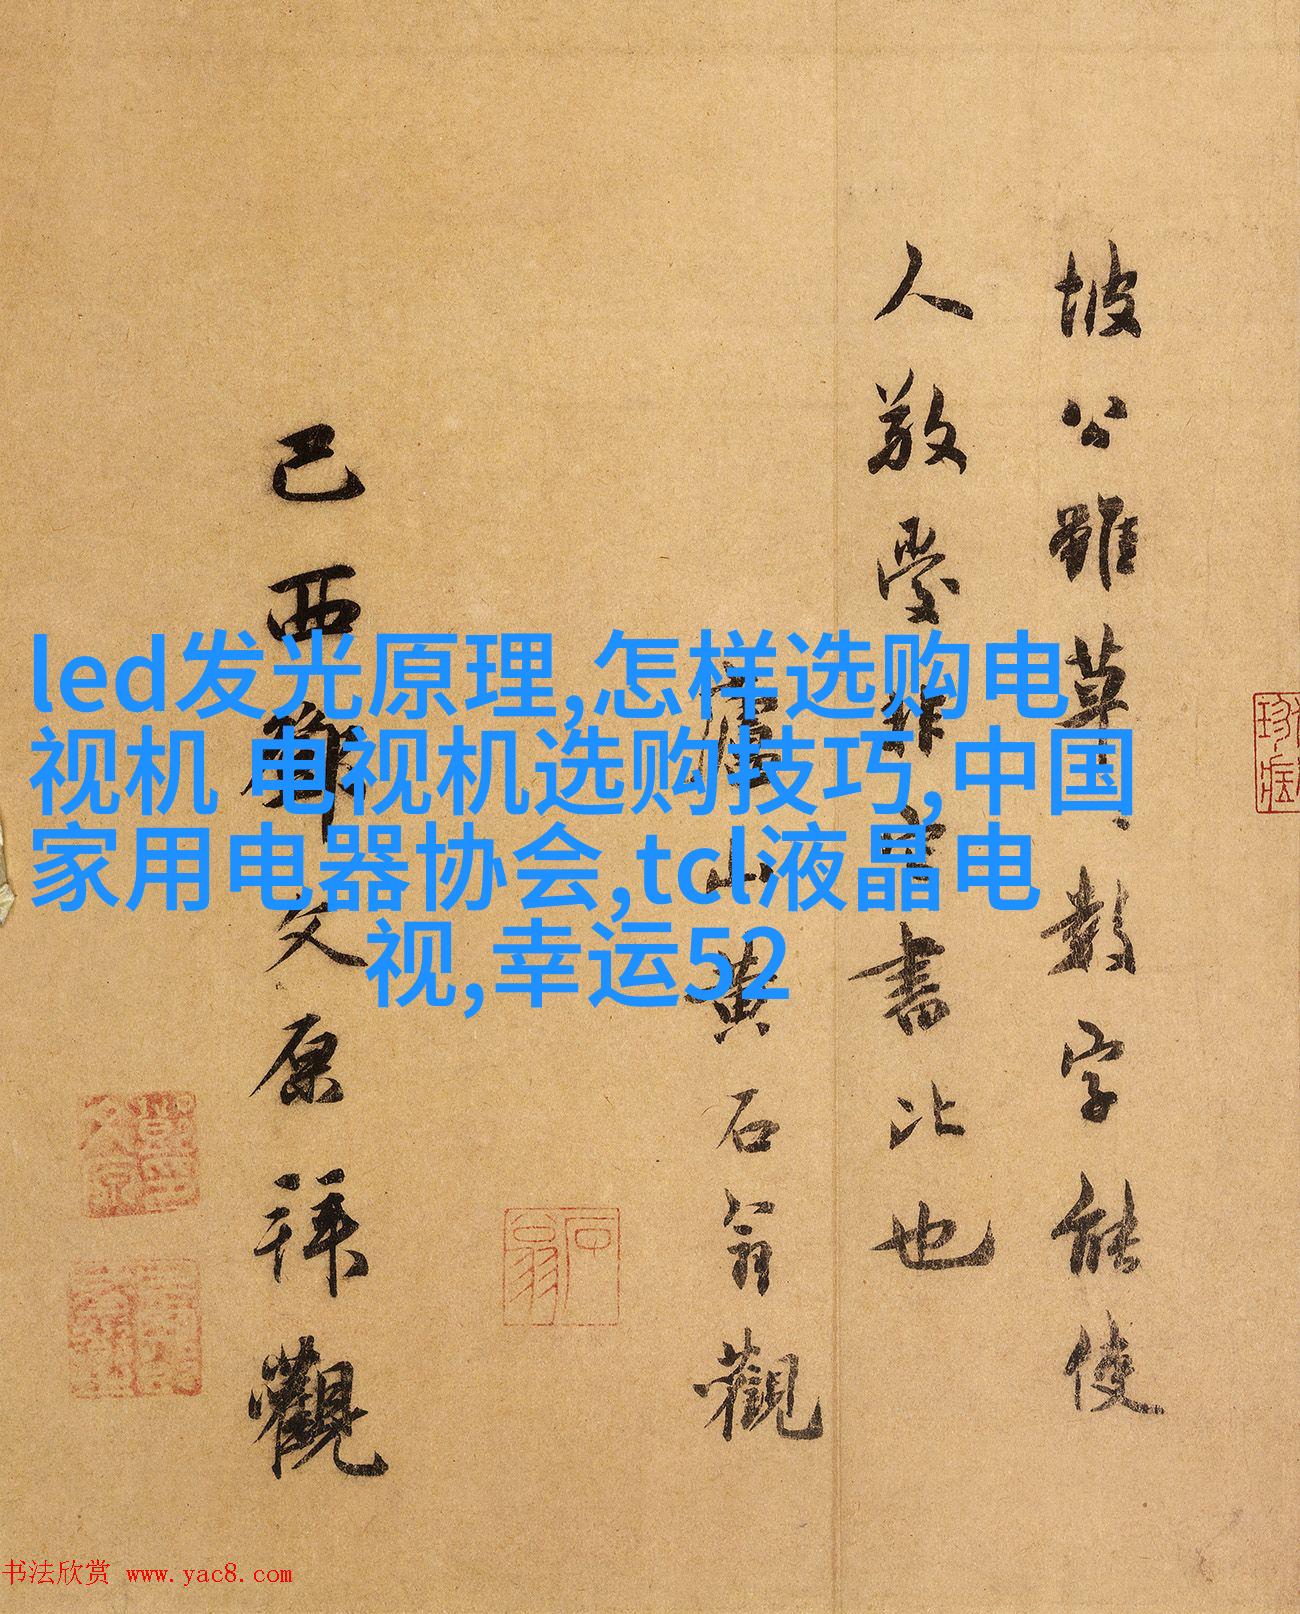 led发光原理,怎样选购电
视机 电视机选购技巧,中国
家用电器协会,tcl液晶电
视,幸运52
坡公雖草、數字能使
人敬愛非它書比也
廬山黄石翁觀
己酉鄧文原拜觀
石翁
书法欣赏 www.yac8.com